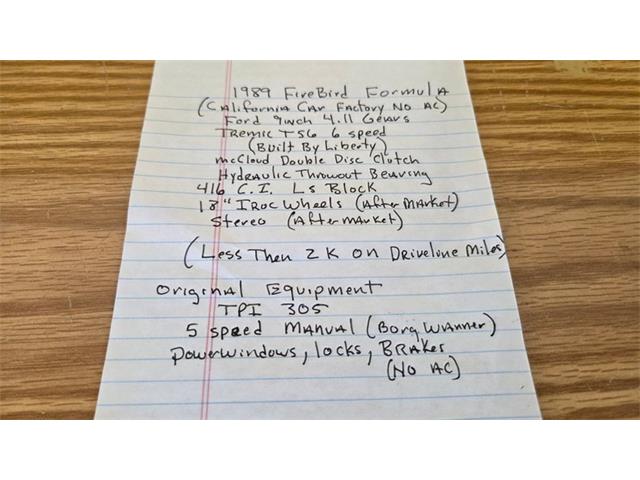 1989 FireBird Formula
(California Car Factory No AC)
Ford 9inch 4.11 Gears
Tremic T56 6 speed
(Built By Liberty)
mcCloud Double Disc Clutch
Hydraulic Throwout Bearing
416 C.I. Ls Block
18" IROC Wheels (After Market)
Stereo (Aftermarket)
(Less Then 2K on Driveline Miles)
Original Equipment
TPI 305
5 speed Manual (Borg Warner)
Powerwindows, locks, Brakes
(No AC)